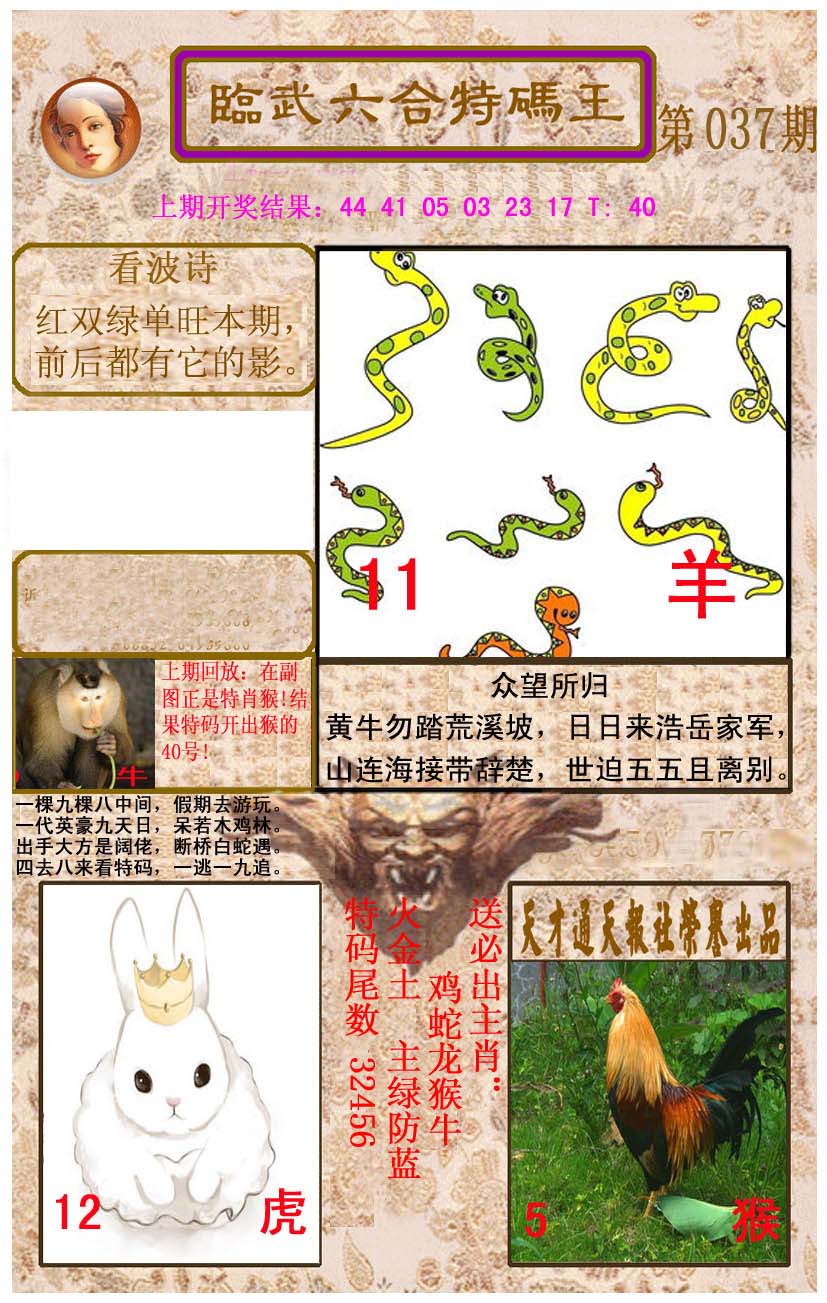 臨武六合特碼王
第037期
上期开奖结果：44 41 05 03 23 17 T: 40
看波诗
红双绿单旺本期，
前后都有它的影。
11
羊
上期回放：在副
图正是特肖猴!结
果特码开出猴的
40号!
牛
众望所归
黄牛勿踏荒溪坡，日日来浩岳家军，
山连海接带辞楚，世迫五五且离别。
一棵九棵八中间，假期去游玩。
一代英豪九天日，呆若木鸡林。
出手大方是阔佬，断桥白蛇遇。
四去八来看特码，一逃一九追。
12
虎
送必出主肖：
鸡蛇龙猴牛
火金土 主绿防蓝
特码尾数 32456
天才通天報社榮譽出品
5
猴